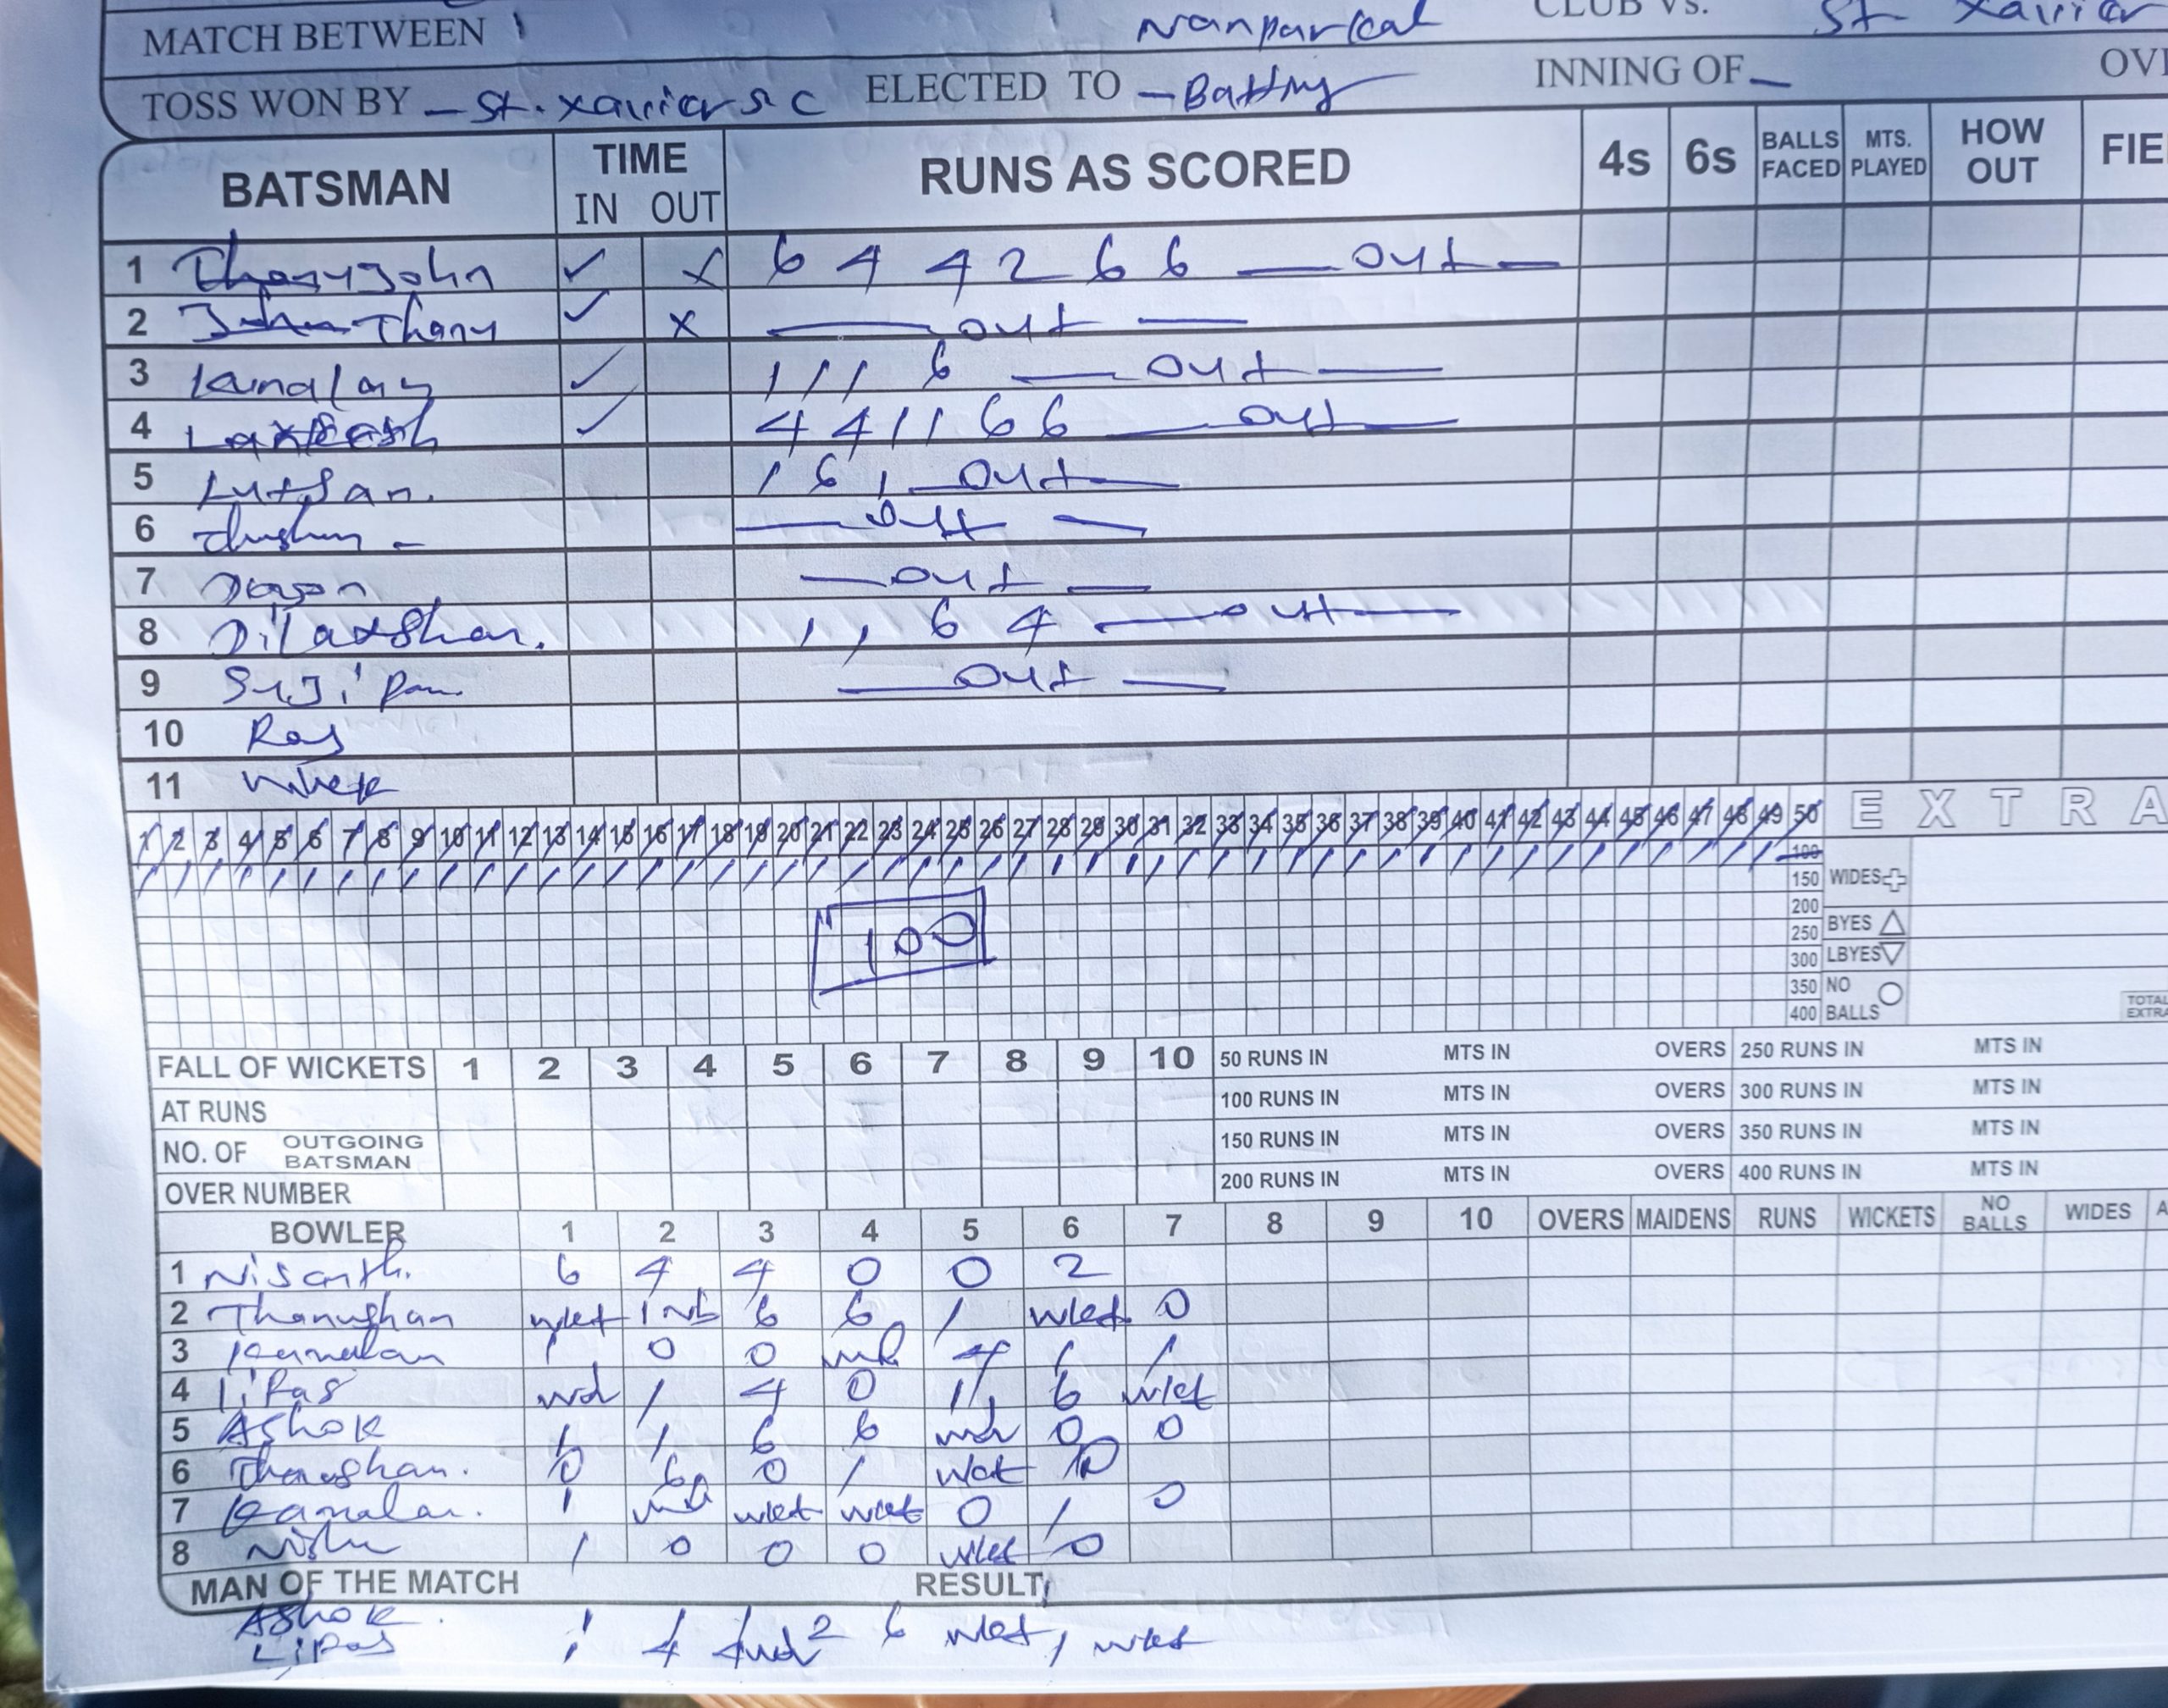 MATCH BETWEEN Nanparkal CLUB VS. St Xavier
TOSS WON BY - St. Xavier S C ELECTED TO - Batting INNING OF - OVE
BATSMAN TIME IN OUT RUNS AS SCORED 4s 6s BALLS FACED MTS. PLAYED HOW OUT FIE
1 John ✓ x 6 4 4 2 6 6 — out —
2 Thany ✓ x — out —
3 ✓ 1 1 1 6 — out —
4 ✓ 4 4 1 1 6 6 — out —
5 1 6 1 — out —
6 — out —
7 — out —
8 Dilaxshan. 1 1 6 4 — out —
9 — out —
10 Raj
11
1 2 3 4 5 6 7 8 9 10 11 12 13 14 15 16 17 18 19 20 21 22 23 24 25 26 27 28 29 30 31 32 33 34 35 36 37 38 39 40 41 42 43 44 45 46 47 48 49 50 EXTRA
100
150 WIDES
200
250 BYES
300 LBYES
350 NO
400 BALLS TOTAL EXTRA
100
FALL OF WICKETS 1 2 3 4 5 6 7 8 9 10 50 RUNS IN MTS IN OVERS 250 RUNS IN MTS IN
AT RUNS 100 RUNS IN MTS IN OVERS 300 RUNS IN MTS IN
NO. OF OUTGOING BATSMAN 150 RUNS IN MTS IN OVERS 350 RUNS IN MTS IN
OVER NUMBER 200 RUNS IN MTS IN OVERS 400 RUNS IN MTS IN
BOWLER 1 2 3 4 5 6 7 8 9 10 OVERS MAIDENS RUNS WICKETS NO BALLS WIDES A
1 Nisanth. 6 4 4 0 0 2
2 Thanushan wket 1 Nb 6 6 1 wket 0
3 Kamalan 1 0 0 4 6 1
4 Lipas wd 1 4 0 1 6 wket
5 Ashok 1 1 6 6 wd 0 0
6 Thanushan. 0 6 0 1 wkt
7 Kamalan. 1 wket wket 0 1 0
8 Nisha 1 0 0 0 wket 0
MAN OF THE MATCH RESULT
Ashok.
Lipas 1 4 2 6 wket 1 wket